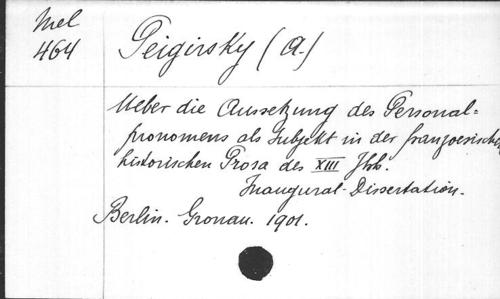 Mel
464
Peigirsky (A.)
Ueber die Aussetzung des Personal=
pronomens als Subjekt in der franzoesischen
historischen Prosa des XIII Jhh.
Inaugural-Dissertation.
Berlin. Gronau. 1901.